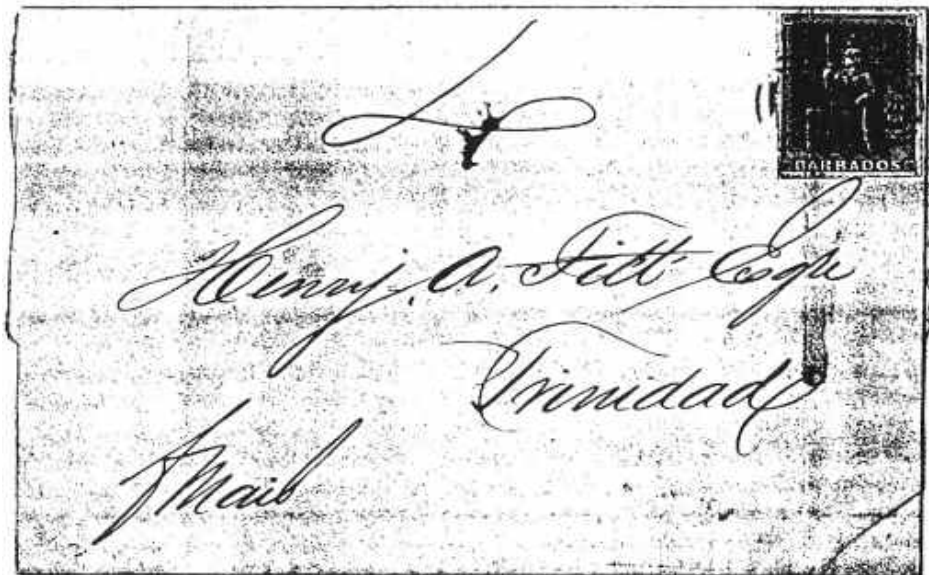 BARBADOS
Henry. A. Fitt Esqr
Trinidad
Mail